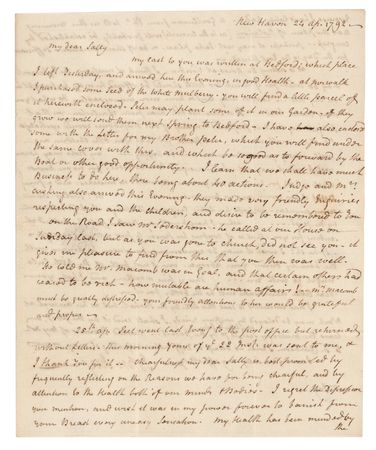 New Haven 24 Ap. 1792 —
my dear Sally
my last to you was written at Bedford; which place
I left Yesterday, and arrived here this Evening, in good Health — at norwalk
I purchased some Seed of the white mulberry — you will find a little parcel of
it herewith enclosed — Peter may plant some of it in our Garden, if they
grow we will send them next Spring to Bedford — I have also enclosed
some with the Letter for my Brother Peter, which you will find under
the same cover with this, and which be so good as to forward by the
Boat or other good opportunity. I learn that we shall have much
Business to do here, there being about 40 actions. Judge and Mrs.
Cushing also arrived this Evening — they made very friendly Enquiries
respecting you and the children, and desire to be remembered to you
on the Road I saw Mr. — he called at our House on
Sunday last, but as you was gone to church, did not see you — it
gives me pleasure to find from this that you then was well.
He told me Mr. Macomb was in Goal, and that certain others had
ceased to be rich — how mutable are human affairs! — Mrs. Macomb
must be greatly distressed — your friendly attentions to her would be grateful
and proper —
25th Ap. I sent went last Evening to the post office but returned
without Letters — this morning yours of ye. 22 Inst. was sent to me, &
I thank you for it — chearfulness my dear Sally is best promoted by
frequently reflecting on the Reasons we have for being chearful, and by
attention to the Health both of our minds & Bodies — I regret the Depression
you mention, and wish it was in my power forever to banish from
your Breast every uneasy Sensation. My Health has been mended by
the